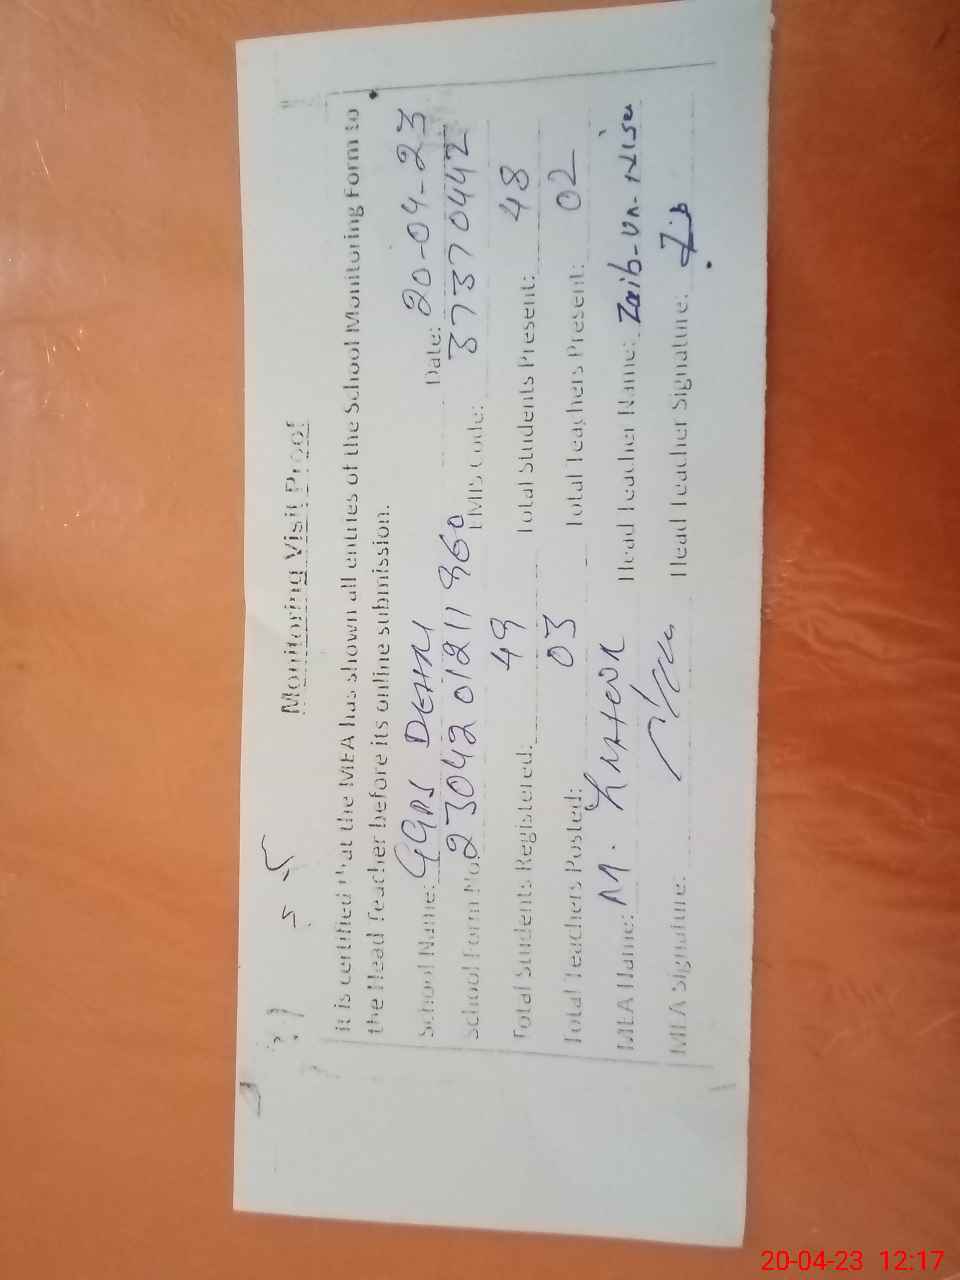 Monitoring Visit Proof
It is certified that the MEA has shown all entries of the School Monitoring Form to
the Head Teacher before its online submission.
School Name: GGPS Date: 20-04-23
School Form No. EMIS Code: 37370442
Total Students Registered: 49 Total Students Present: 48
Total Teachers Posted: 03 Total Teachers Present: 02
MEA Name: M. Head Teacher Name: Zaib-un-Nisa
MEA Signature: Head Teacher Signature:
20-04-23 12:17